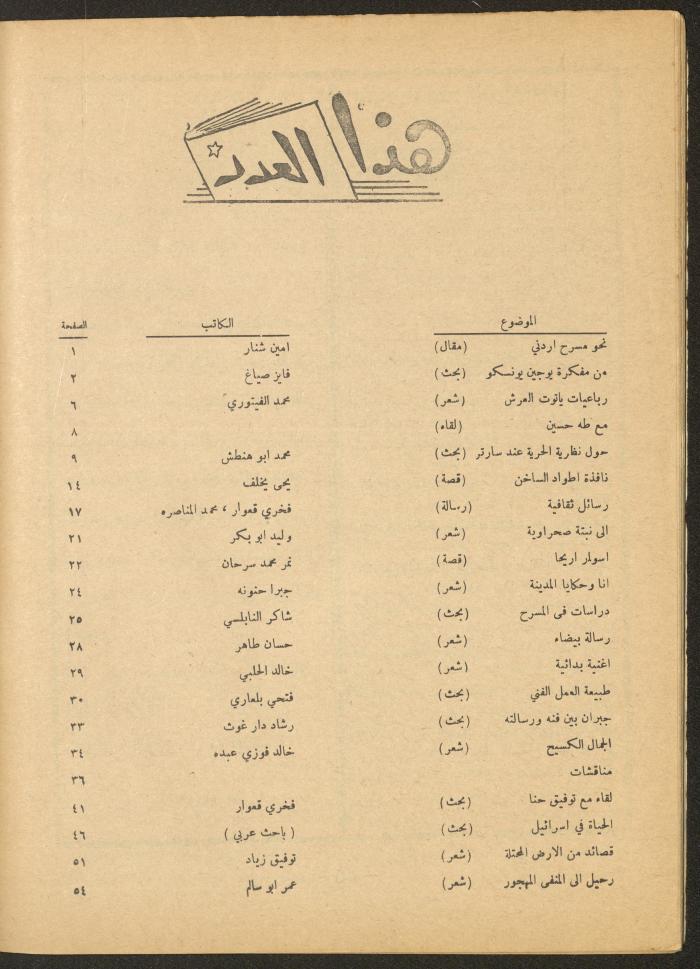 هذا العدد
الموضوع الكاتب الصفحة
نحو مسرح اردني (مقال) امين شنار ١
من مفكرة يوجين يونسكو (بحث) فايز صياغ ٢
رباعيات ياتوت العرش (شعر) محمد الفيتوري ٦
مع طه حسين (لقاء) ٨
حول نظارية الحرية عند سارتر (بحث) محمد ابو هنطش ٩
نافذة اطواد الساخن (قصة) يحى يخلف ١٤
رسائل ثقافية (رسالة) فخري قعوار ، محمد المناصره ١٧
الى نبتة صحراوية (شعر) وليد ابو بكر ٢١
اسوار اريحا (قصة) نمر محمد سرحان ٢٢
انا وحكايا المدينة (شعر) جبرا حنونه ٢٤
دراسات فى المسرح (بحث) شاكر النابلسي ٢٥
رسالة بيضاء (شعر) حسان طاهر ٢٨
اغنية بدائية (شعر) خالد الحلبي ٢٩
طبيعة العمل الفني (بحث) فتحي بلعاري ٣٠
جبران بين فنه ورسالته (بحث) رشاد دار غوث ٣٣
الجمال الكسيح (شعر) خالد فوزي عبده ٣٤
مناقشات ٣٦
لقاء مع توفيق حنا (بحث) فخري قعوار ٤١
الحياة في اسرائيل (بحث) ( باحث عربي ) ٤٦
قصائد من الارض المحتلة (شعر) توفيق زياد ٥١
رحيل الى المنفى المهجور (شعر) عمر ابو سالم ٥٤